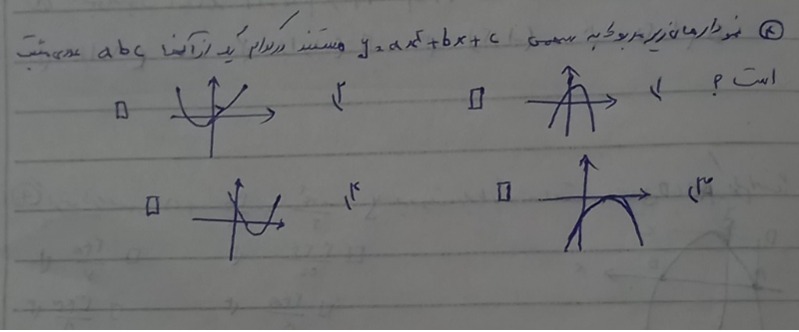 نمودارهای زیر مربوط به سهمی y=ax²+bx+c هستند در کدام یک از آنها abc مثبت
است ؟
۱) □
۲) □
۳) □
۴) □